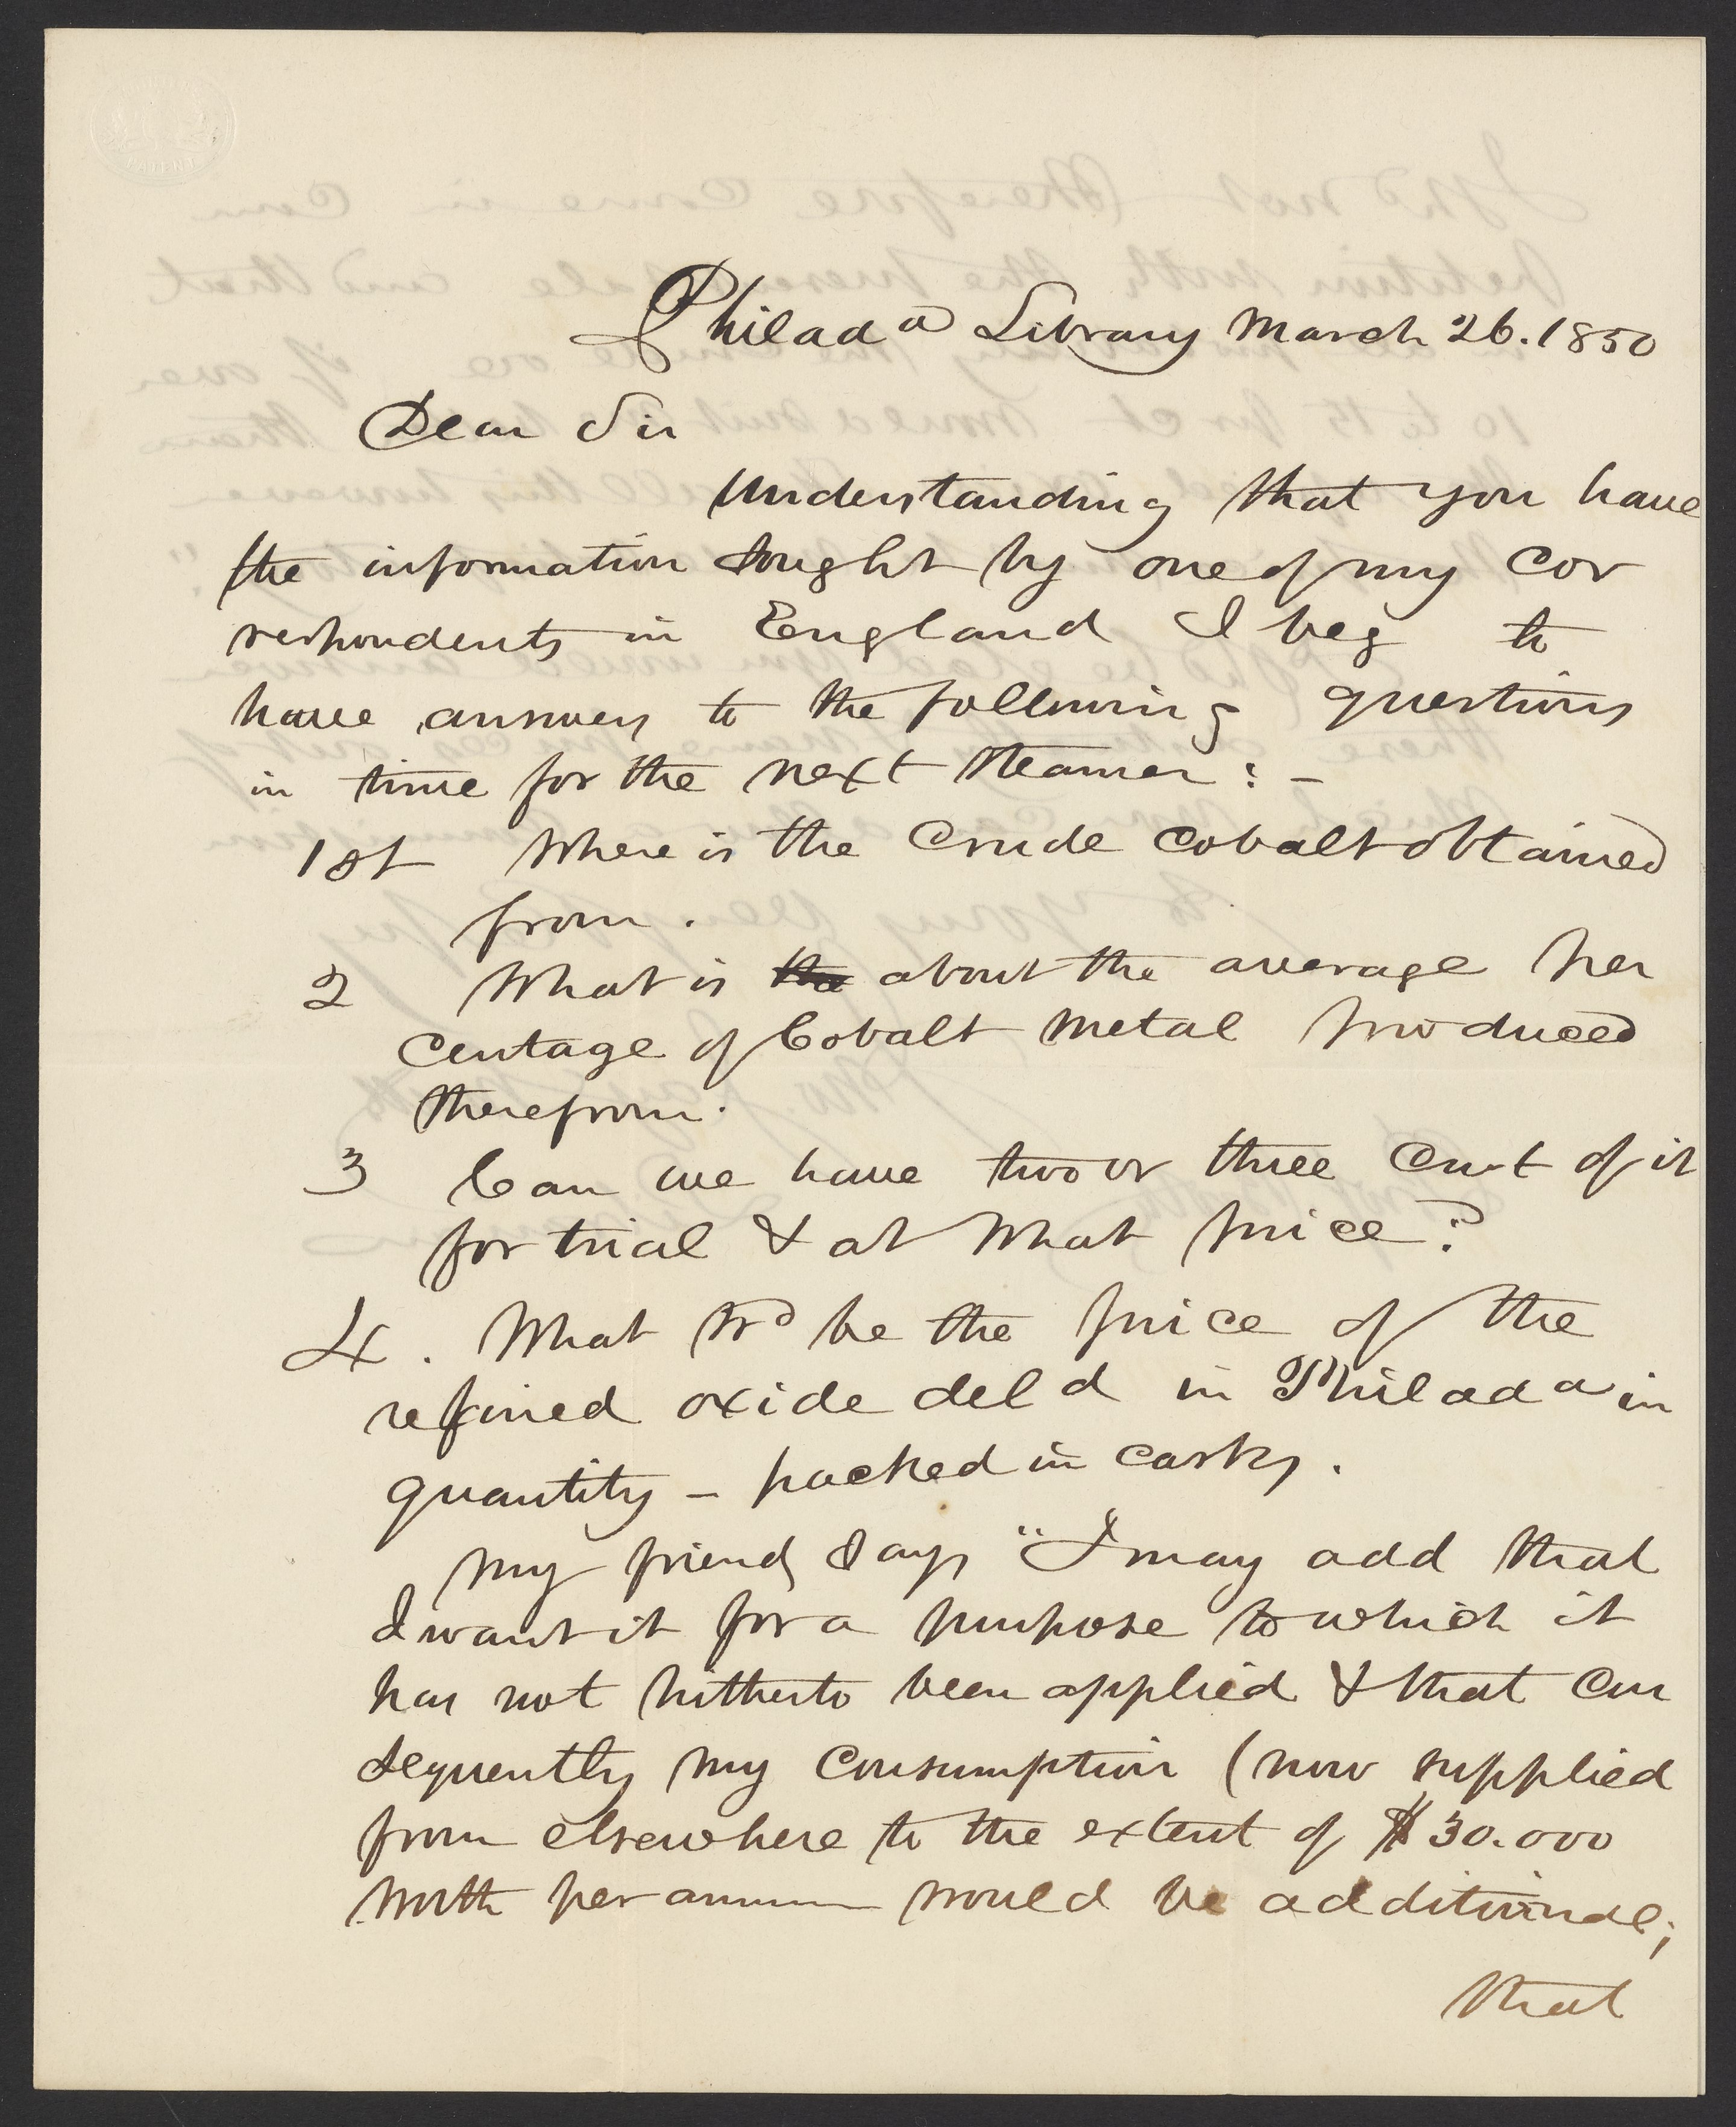 Philad a Library March 26. 1850
Dear Sir
Understanding that you have
the information sought by one of my cor
respondents in England I beg to
have answers to the following questions
in time for the next steamer : -
1st Where is the Crude Cobalt obtained
from .
2 What is the about the average per
centage of Cobalt metal produced
therefrom.
3 Can we have two or three Cwt of it
for trial & at what price ?
4 . What wd be the price of the
refined oxide deld in Philada in
quantity - packed in casks .
My friend says "I may add that
I want it for a purpose to which it
has not hitherto been applied & that con
sequently my Consumption (now supplied
from elsewhere to the extent of $30.000
worth per annum would be additional;
that
PATENT